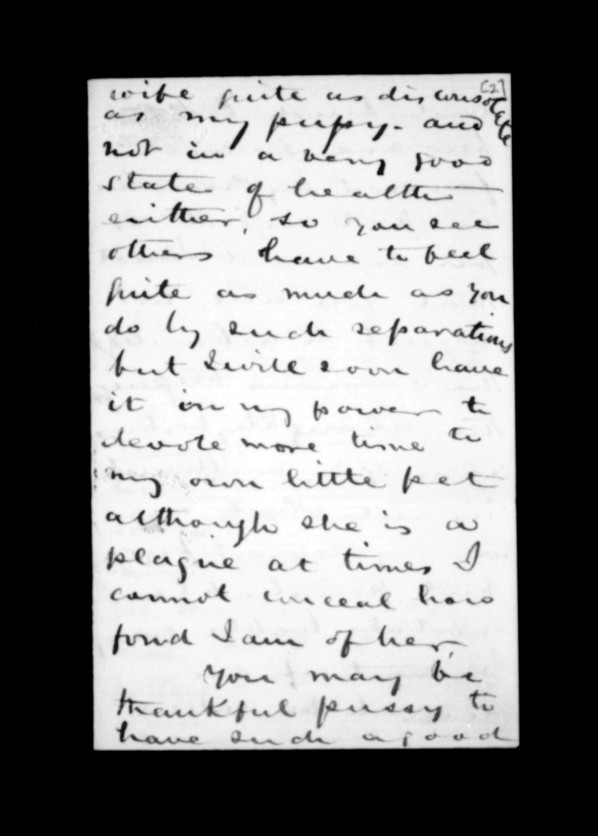 [2]
wife quite as disconsolate
as my pupsy. and
not in a very good
state of health
either, so you see
others have to feel
quite as much as you
do by such separations
but I will soon have
it in my power to
devote more time to
my own little pet
although she is a
plague at times I
cannot conceal how
fond I am of her
You may be
thankful pussy to
have such a good